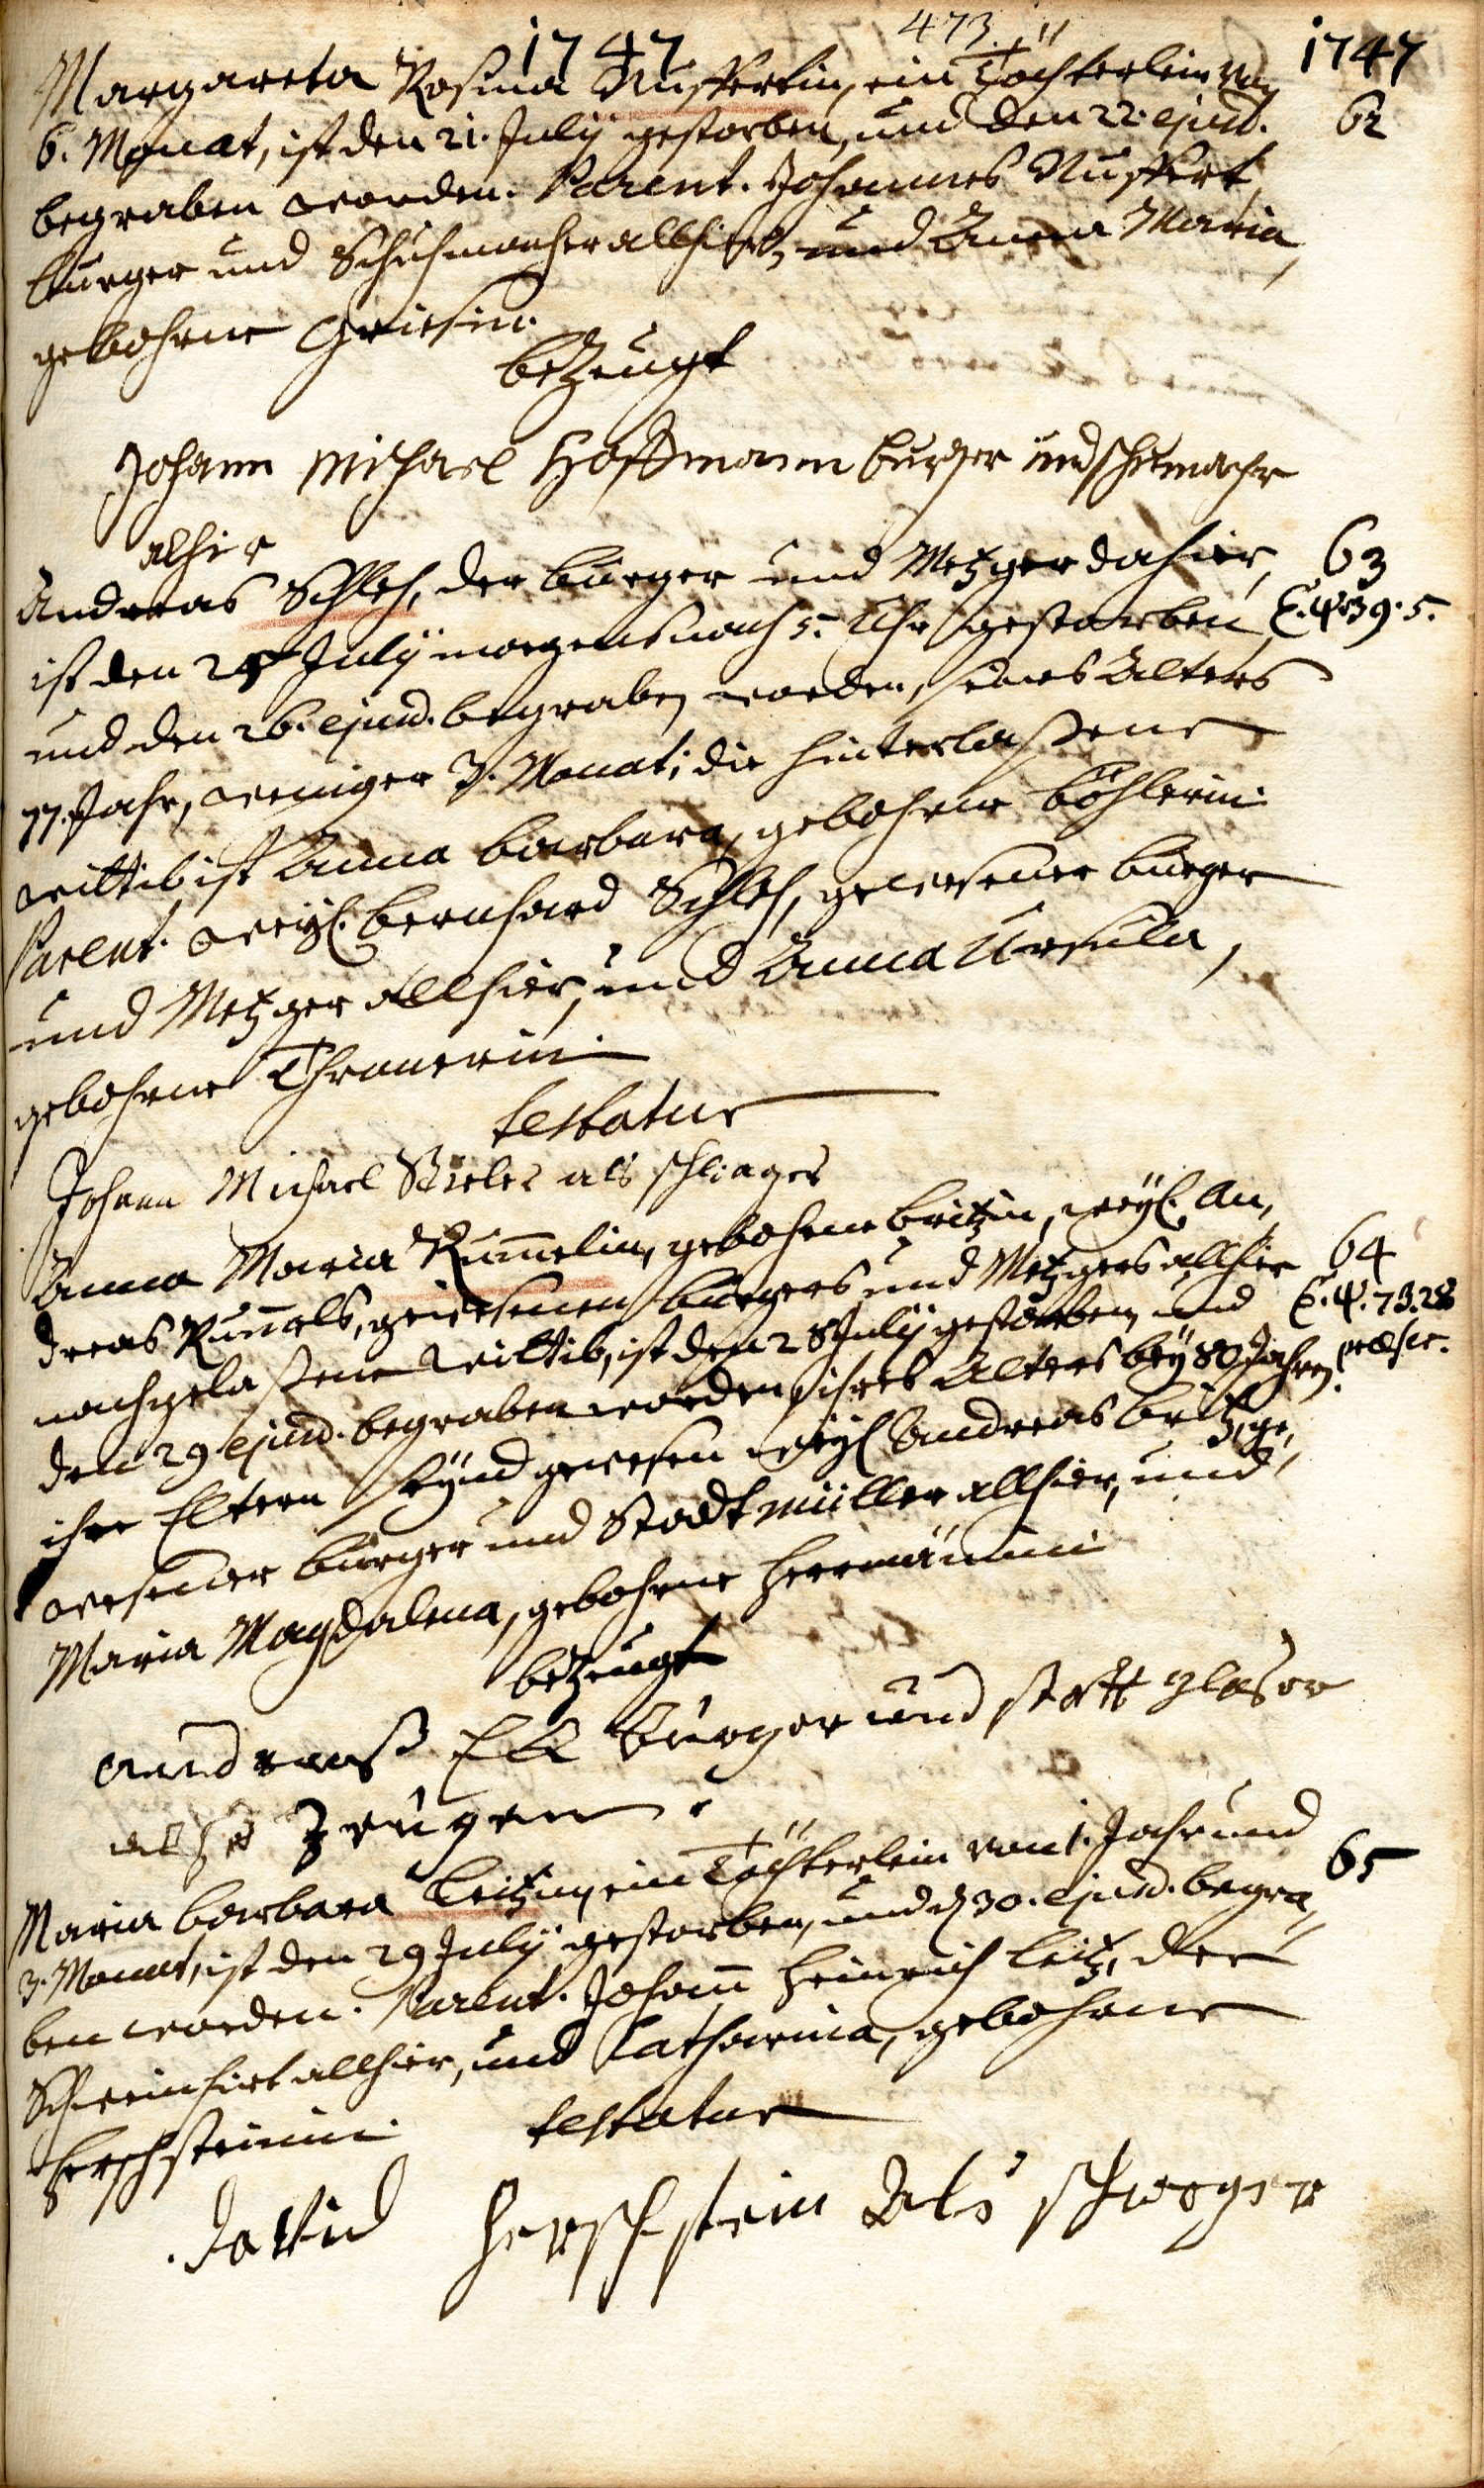 473.
1747 1747
Margareta Rosina Nussertin, ein Töchterlein von 62
6. Monat, ist den 21. Julÿ gestorben, und den 22. ejusd.
begraben worden. Parent. Johannes Nussert
burger und Schuhmacher allhier, und Anna Maria,
gebohrne Griesin.
bezeugt
Johann Michael Hoffmann burger und schumacher
alhier
Andreas Schloh, der burger und Metzger dahier, 63
ist den 25 Julÿ morgens nach 5. Uhr gestorben, E. ψ. 39. 5.
und den 26. ejusd. begraben worden, seines Alters
77. Jahr, weniger 3. Monat; die hinterlaßene
wittib ist Anna barbara, gebohrne böhlerin.
Parent. weÿl. bernhard Schloh, gewesener burger
und Metzger allhier, und Anna Ursula,
gebohrne Thronerin.
testatur
Johann Michael als
Anna Maria Rum̄elin, gebohrne britzin, weÿl. An, 64
dreas Rum̄els, gewesenen burgers und Metzgers allhier E. ψ. 73. 28
nachgelaßene wittib, ist den 28 Julÿ gestorben, und
den 29 ejusd. begraben worden, ihres Alters beÿ 80 Jahren.
ihre Eltern seÿnd gewesen weÿl Andreas britz, ge,
wesener burger und Stadt müller allhier, und
Maria Magdalena, gebohrne Hermännin
bezeugt
andreas burger und statt glaser
alß zeugen.
Maria barbara Leitzin, ein Töchterlein von 1. Jahr und 65
3. Monat, ist den 29 Julÿ gestorben, und d. 30. ejusd. begra,
ben worden. Parent. Johann Heinrich Leitz, der
Schweinhirt allhier, und Catharina, gebohrne
Herschsteinin. testatur
David Herschstein Als schwoger